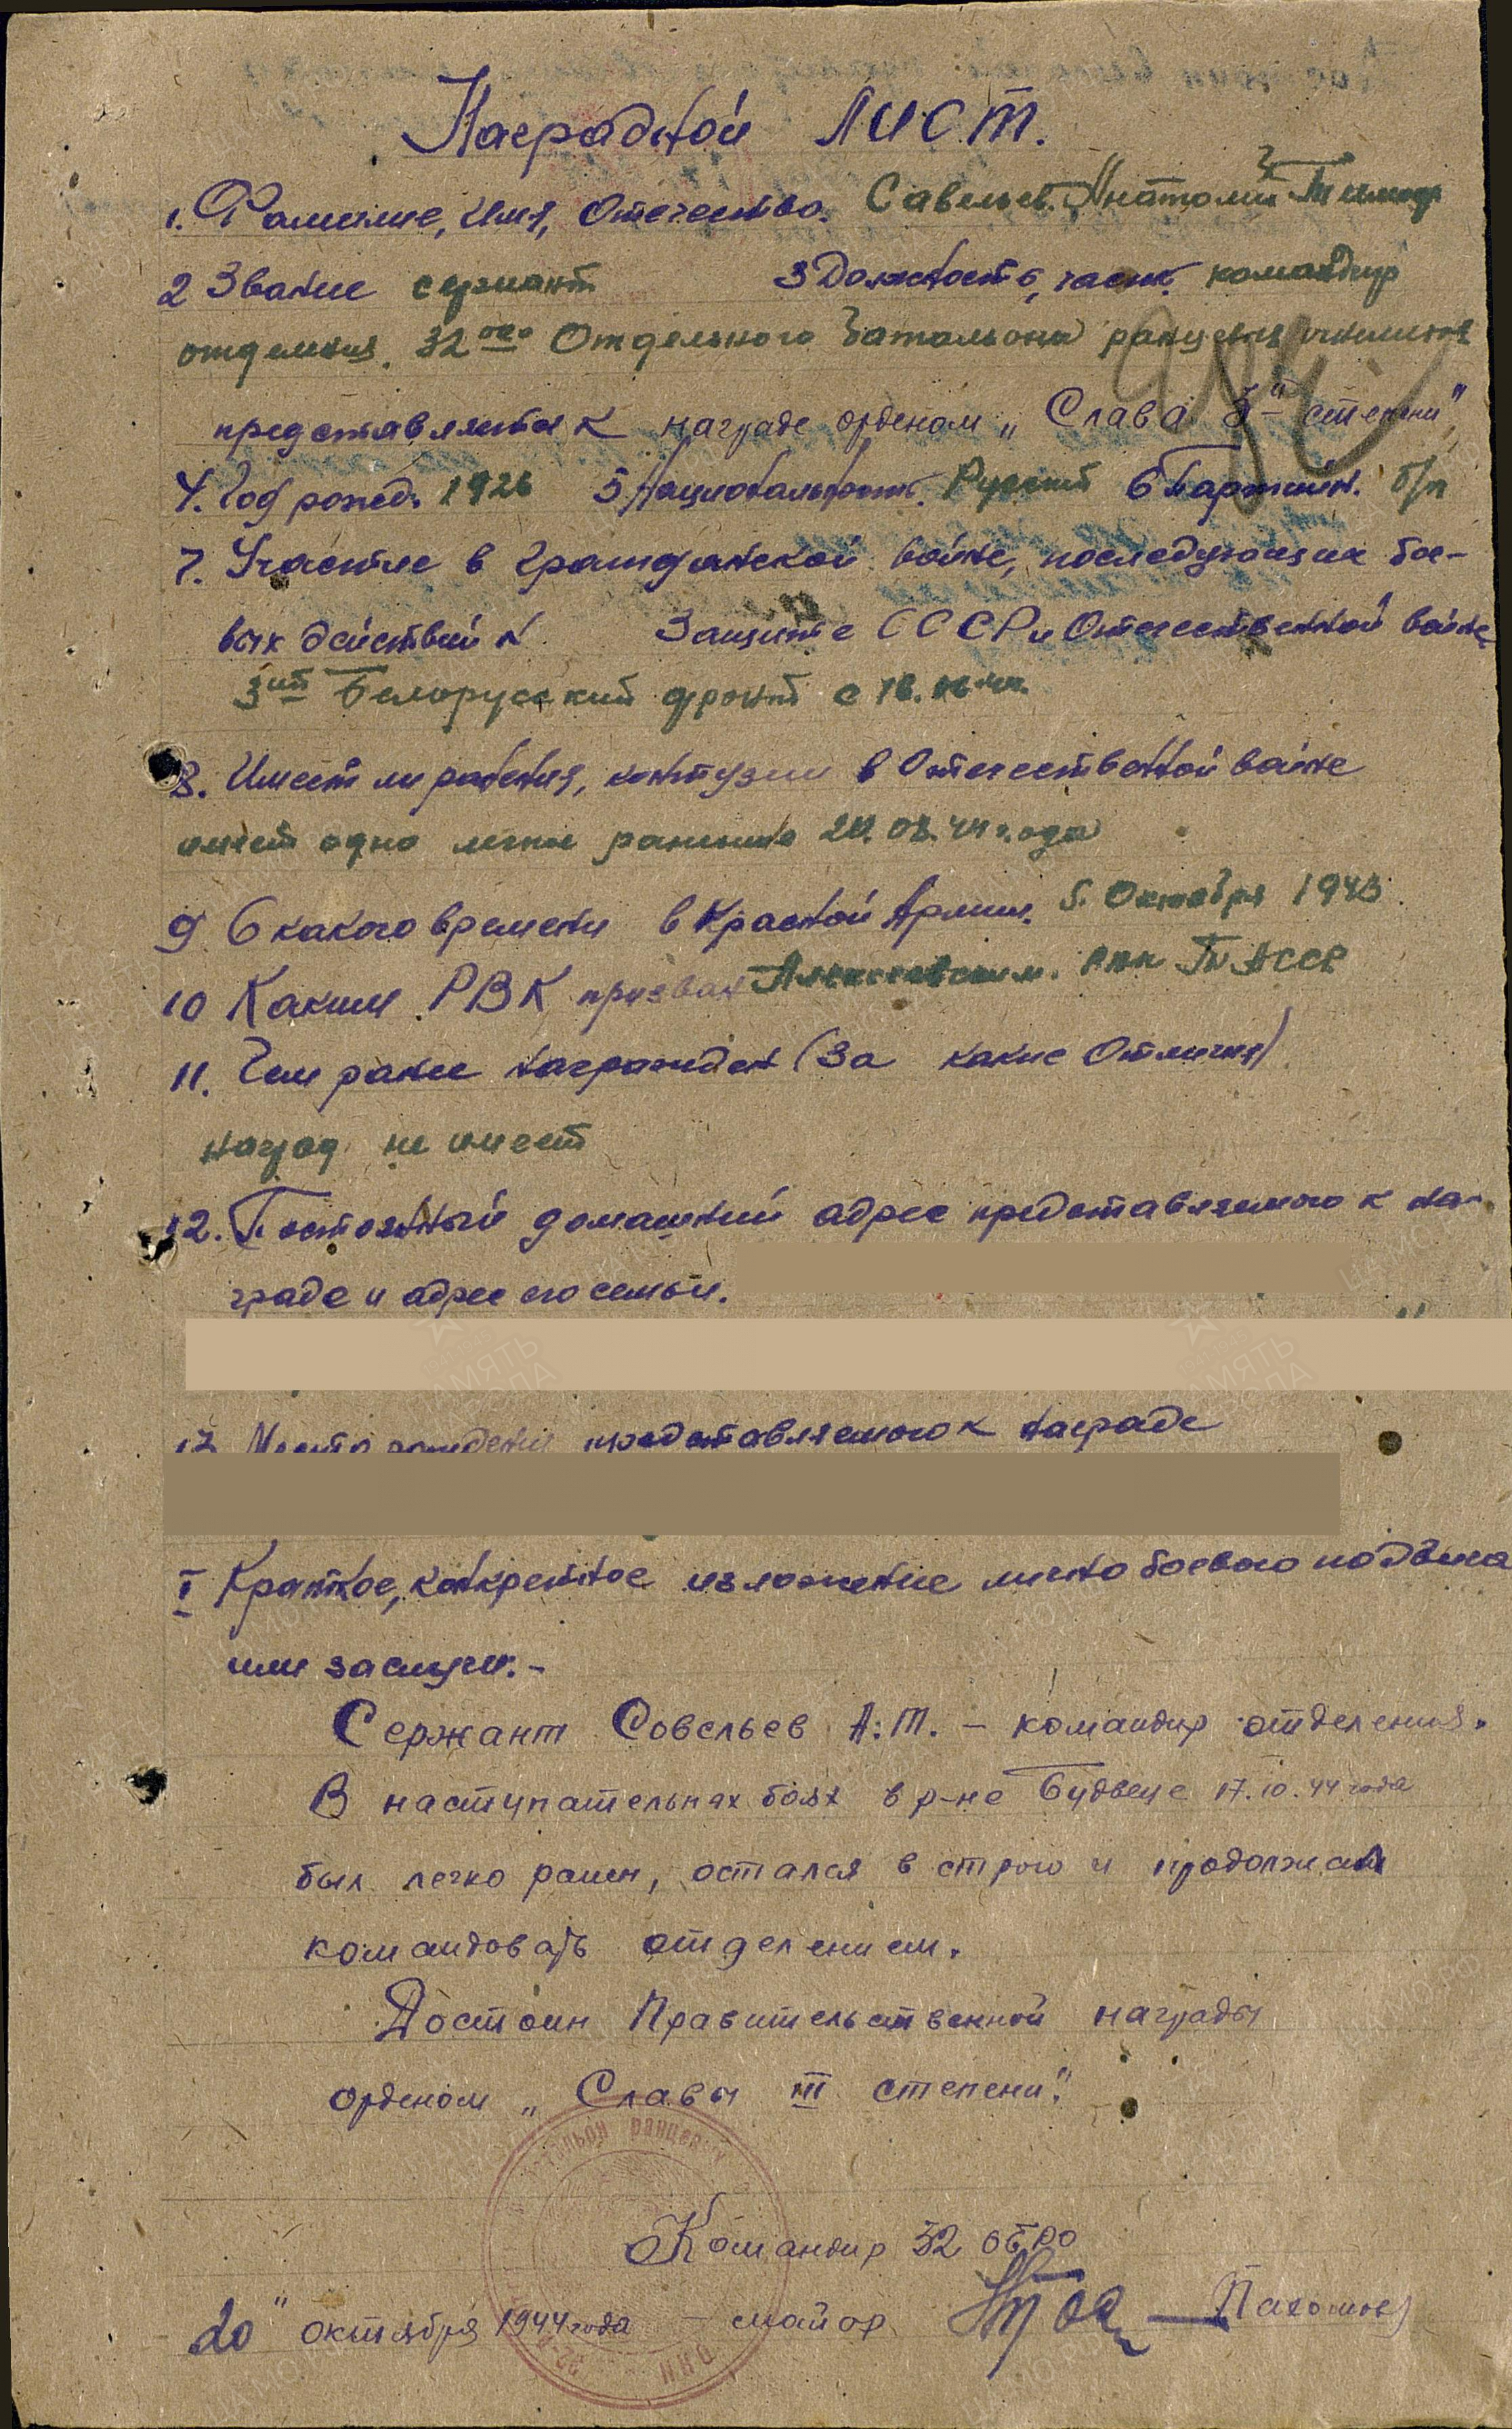 Наградной лист.
1. Фамилие, имя, Отечество. Савельев Анатолий Тимоф
2 Звание сержант 3 Должность, часть. командир
отделения. 32ого Отдельного батальона ранцевых огнеметов
представляется к награде орденом „Слава 3й степени"
4. Год рожд. 1926 5 Национальность. Русский 6 Партийн. б/п
7. Участие в гражданской войне, последующих бое-
вых действий Защите СССР и Отечественной войне
3ий Белорусский фронт с
8. Имеет ли ранения, контузии в Отечественной войне
имеет одно легкое ранение 20.08.44 года
9 С какого времени в Красной Армии. 5. Октября 1943
10 Каким РВК призван Алексеевским. РВК ТАССР
11. Чем ранее награжден (За какие Отличия)
наград не имеет
12. Постоянный домашний адрес представляемого к на-
граде и адрес его семьи.
13 Место рождения представляемого к награде
I Краткое, конкретное изложение лично боевого подвига
или заслуги.-
Сержант Совельев А.Т. - командир отделения.
В наступательных боях в р-не Будвеце 17.10.44 года
был легко ранен, остался в строю и продолжал
командовать отделением.
Достоин Правительственной награды
орденом „Славы III степени".
Командир 32 ОБРО
20" октября 1944 года - майор Пахомов